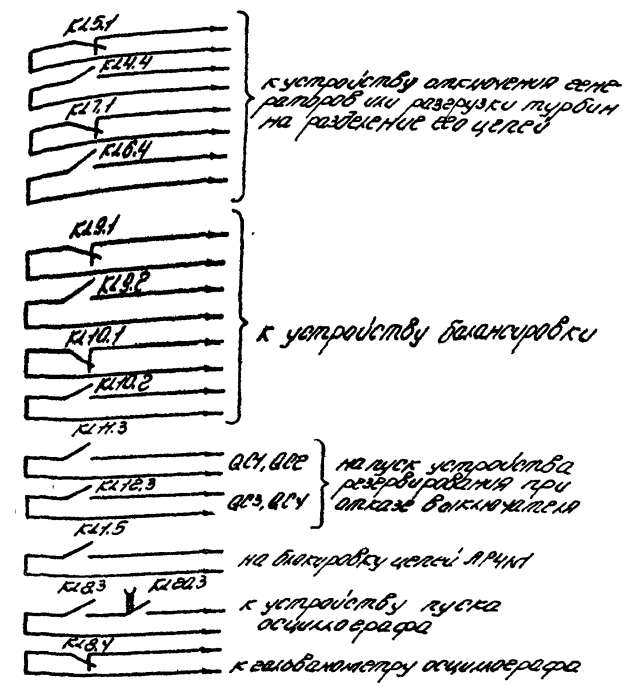 KL5.1
KL4.4
KL7.1
KL6.4
к устройству отключения гене-
раторов или разгрузки турбин
на разделение его цепей
KL9.1
KL9.2
KL10.1
KL10.2
к устройству балансировки
KL11.3
QC1, QC2
KL12.3
QC3, QC4
на пуск устройства
резервирования при
отказе выключателя
KL1.5
на блокировку цепей
KL8.3
KL20.3
к устройству пуска
осциллографа
KL8.4
к гальванометру осциллографа